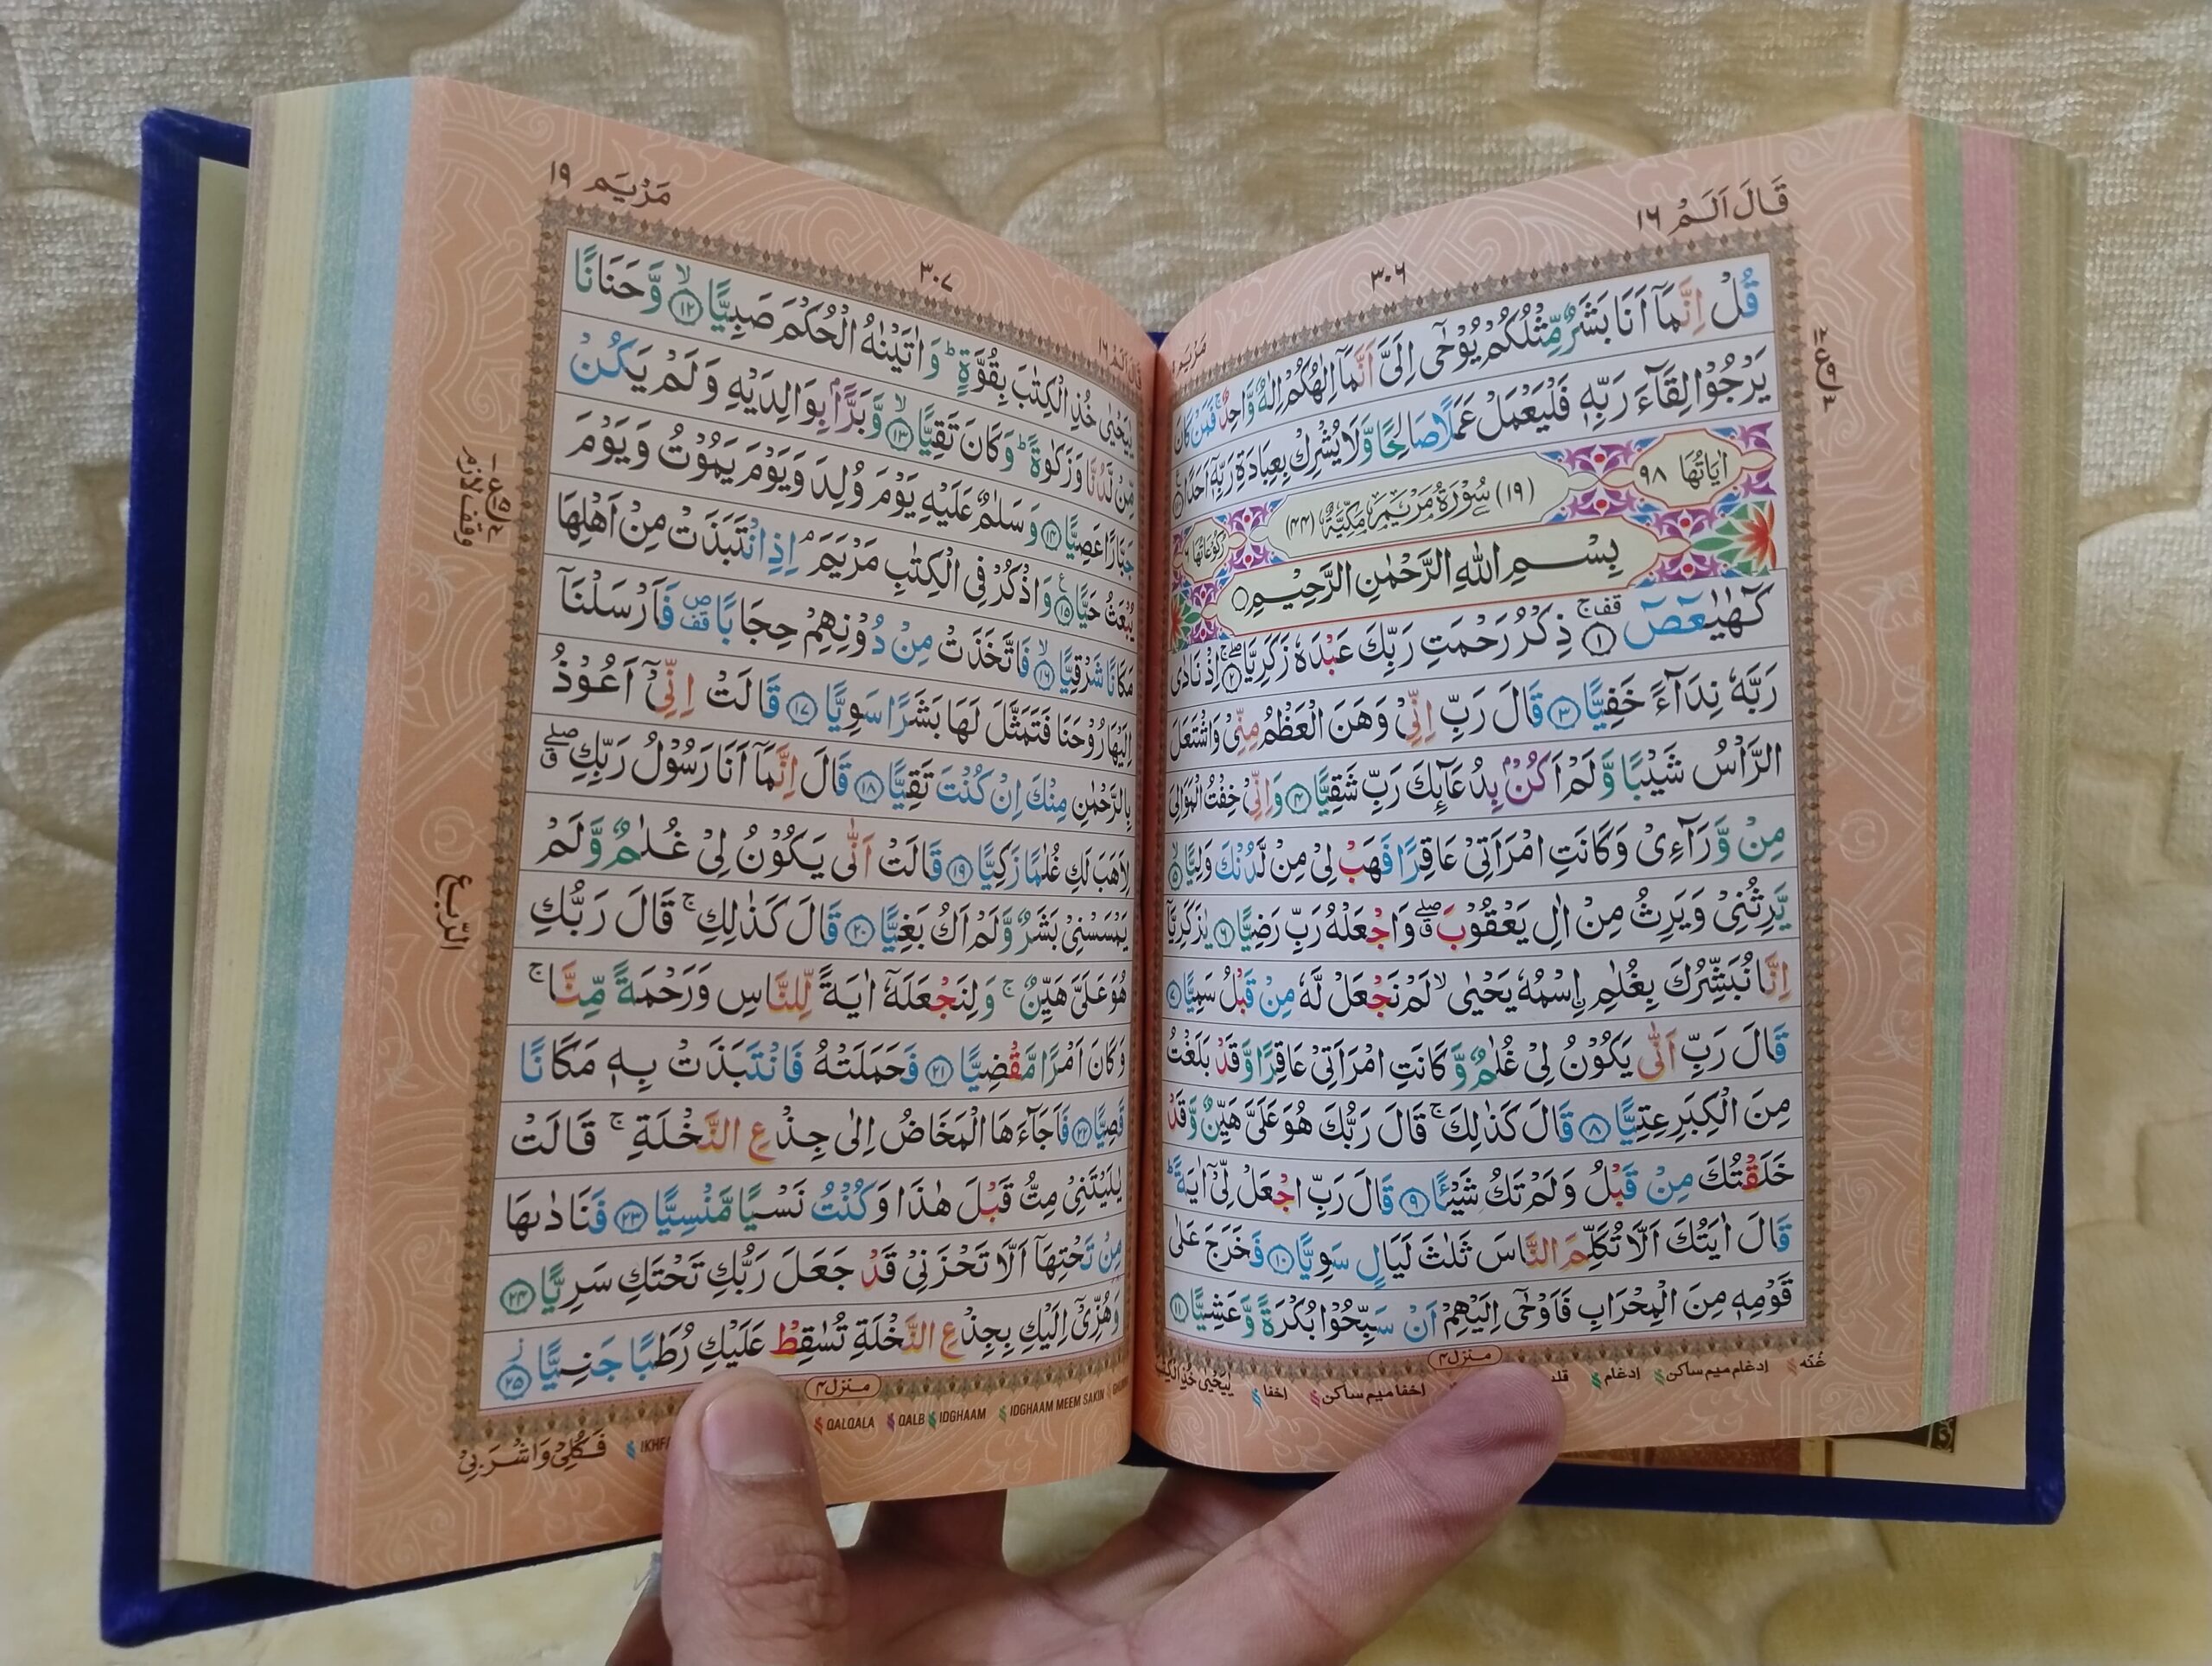 قَالَ اَلَمْ ١٦
٣٠٦
مَرْيَم
قُلْ اِنَّمَآ اَنَا بَشَرٌ مِّثْلُكُمْ يُوْحٰٓى اِلَيَّ اَنَّمَآ اِلٰهُكُمْ اِلٰهٌ وَّاحِدٌ ۚ فَمَنْ كَانَ
يَرْجُوْا لِقَآءَ رَبِّهٖ فَلْيَعْمَلْ عَمَلًا صَالِحًا وَّلَا يُشْرِكْ بِعِبَادَةِ رَبِّهٖٓ اَحَدًا
اٰيَاتُهَا ٩٨
(١٩) سُوْرَةُ مَرْيَمَ مَكِّيَّةٌ (٤٤)
رُكُوْعَاتُهَا ٦
بِسْمِ اللّٰهِ الرَّحْمٰنِ الرَّحِيْمِ
كٓهٰيٰعٓصٓ ۚ قف ﴿١﴾ ذِكْرُ رَحْمَتِ رَبِّكَ عَبْدَهٗ زَكَرِيَّا ۖۚ ﴿٢﴾ اِذْ نَادٰى
رَبَّهٗ نِدَآءً خَفِيًّا ﴿٣﴾ قَالَ رَبِّ اِنِّيْ وَهَنَ الْعَظْمُ مِنِّيْ وَاشْتَعَلَ
الرَّاْسُ شَيْبًا وَّلَمْ اَكُنْۢ بِدُعَآئِكَ رَبِّ شَقِيًّا ﴿٤﴾ وَاِنِّيْ خِفْتُ الْمَوَالِيَ
مِنْ وَّرَآءِيْ وَكَانَتِ امْرَاَتِيْ عَاقِرًا فَهَبْ لِيْ مِنْ لَّدُنْكَ وَلِيًّا ۙ ﴿٥﴾
يَّرِثُنِيْ وَيَرِثُ مِنْ اٰلِ يَعْقُوْبَ ۖ ق وَاجْعَلْهُ رَبِّ رَضِيًّا ﴿٦﴾ يٰزَكَرِيَّآ
اِنَّا نُبَشِّرُكَ بِغُلٰمِ ࣙاسْمُهٗ يَحْيٰى ۙ لَمْ نَجْعَلْ لَّهٗ مِنْ قَبْلُ سَمِيًّا ﴿٧﴾
قَالَ رَبِّ اَنّٰى يَكُوْنُ لِيْ غُلٰمٌ وَّكَانَتِ امْرَاَتِيْ عَاقِرًا وَّقَدْ بَلَغْتُ
مِنَ الْكِبَرِ عِتِيًّا ﴿٨﴾ قَالَ كَذٰلِكَ ۚ قَالَ رَبُّكَ هُوَ عَلَيَّ هَيِّنٌ وَّقَدْ
خَلَقْتُكَ مِنْ قَبْلُ وَلَمْ تَكُ شَيْـًٔا ﴿٩﴾ قَالَ رَبِّ اجْعَلْ لِّيْٓ اٰيَةً ؕ
قَالَ اٰيَتُكَ اَلَّا تُكَلِّمَ النَّاسَ ثَلٰثَ لَيَالٍ سَوِيًّا ﴿١٠﴾ فَخَرَجَ عَلٰى
قَوْمِهٖ مِنَ الْمِحْرَابِ فَاَوْحٰٓى اِلَيْهِمْ اَنْ سَبِّحُوْا بُكْرَةً وَّعَشِيًّا ﴿١١﴾
منزل ٤
غُنّه ادغام ميم ساكن ادغام اخفا ميم ساكن اخفا
يٰيَحْيٰى خُذِ الْكِتٰبَ
مَرْيَم ١٩
٣٠٧
قَالَ اَلَمْ ١٦
يٰيَحْيٰى خُذِ الْكِتٰبَ بِقُوَّةٍ ؕ وَاٰتَيْنٰهُ الْحُكْمَ صَبِيًّا ۙ ﴿١٢﴾ وَّحَنَانًا
مِّنْ لَّدُنَّا وَزَكٰوةً ؕ وَكَانَ تَقِيًّا ۙ ﴿١٣﴾ وَّبَرًّۢا بِوَالِدَيْهِ وَلَمْ يَكُنْ
جَبَّارًا عَصِيًّا ﴿١٤﴾ وَسَلٰمٌ عَلَيْهِ يَوْمَ وُلِدَ وَيَوْمَ يَمُوْتُ وَيَوْمَ
يُبْعَثُ حَيًّا ﴿١٥﴾ وَاذْكُرْ فِي الْكِتٰبِ مَرْيَمَ ۘ اِذِ انْتَبَذَتْ مِنْ اَهْلِهَا
مَكَانًا شَرْقِيًّا ۙ ﴿١٦﴾ فَاتَّخَذَتْ مِنْ دُوْنِهِمْ حِجَابًا ص قف فَاَرْسَلْنَآ
اِلَيْهَا رُوْحَنَا فَتَمَثَّلَ لَهَا بَشَرًا سَوِيًّا ﴿١٧﴾ قَالَتْ اِنِّيْٓ اَعُوْذُ
بِالرَّحْمٰنِ مِنْكَ اِنْ كُنْتَ تَقِيًّا ﴿١٨﴾ قَالَ اِنَّمَآ اَنَا رَسُوْلُ رَبِّكِ ۖ ق
لِاَهَبَ لَكِ غُلٰمًا زَكِيًّا ﴿١٩﴾ قَالَتْ اَنّٰى يَكُوْنُ لِيْ غُلٰمٌ وَّلَمْ
يَمْسَسْنِيْ بَشَرٌ وَّلَمْ اَكُ بَغِيًّا ﴿٢٠﴾ قَالَ كَذٰلِكِ ۚ قَالَ رَبُّكِ
هُوَ عَلَيَّ هَيِّنٌ ۚ وَلِنَجْعَلَهٗٓ اٰيَةً لِّلنَّاسِ وَرَحْمَةً مِّنَّا ۚ
وَكَانَ اَمْرًا مَّقْضِيًّا ﴿٢١﴾ فَحَمَلَتْهُ فَانْتَبَذَتْ بِهٖ مَكَانًا
قَصِيًّا ﴿٢٢﴾ فَاَجَآءَهَا الْمَخَاضُ اِلٰى جِذْعِ النَّخْلَةِ ۚ قَالَتْ
يٰلَيْتَنِيْ مِتُّ قَبْلَ هٰذَا وَكُنْتُ نَسْيًا مَّنْسِيًّا ﴿٢٣﴾ فَنَادٰىهَا
مِنْ تَحْتِهَآ اَلَّا تَحْزَنِيْ قَدْ جَعَلَ رَبُّكِ تَحْتَكِ سَرِيًّا ﴿٢٤﴾
وَهُزِّيْٓ اِلَيْكِ بِجِذْعِ النَّخْلَةِ تُسٰقِطْ عَلَيْكِ رُطَبًا جَنِيًّا ﴿٢٥﴾
وقف لازم
الرّبع
منزل ٤
QALQALA QALB IDGHAAM IDGHAAM MEEM SAKIN
فَكُلِيْ وَاشْرَبِيْ